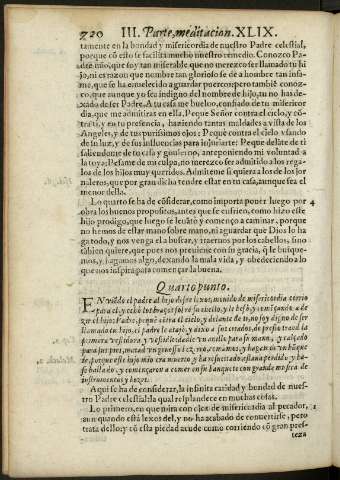 720 III. Parte, meditacion. XLIX.
tamente en la bondad y misericordia de nuestro Padre celestial,
porque cõ esto se facilita mucho nuestro remedio. Conozco Pa-
dre mio, que soy tan miserable que no merezco ser llamado tu hi
jo, ni es razon que nombre tan glorioso se dè a hombre tan infa-
me, que se ha enuilecido a guardar puercos; pero tambiẽ conoz-
co, que aunque yo sea indigno del nombre de hijo, tu no has de-
xado de ser Padre. A tu casa me buelvo, confiado de tu misericor
dia, que me admitiras en ella. Peque Señor contra el cielo, y cõ-
tra ti, y en tu presencia, haziendo tantas maldades a vista de los
Angeles, y de tus purissimos ojos: Peque contra el cielo vsando
de su luz, y de sus influencias para injuriarte: Peque delãte de ti
saliendome de tu casa y gouierno, anteponiendo mi voluntad a
la tuya: Pesame de mi culpa, no merezco ser admitido a los rega-
los de los hijos muy queridos. Admiteme si quiera a los de los jor
naleros, que por gran dicha tendre estar en tu casa, aunque sea el
menor della.
Lo quarto se ha de cõsiderar, como importa poner luego por 4
obra los buenos propositos, antes que se enfrien, como hizo este
hijo prodigo, que luego se leuãtò y començo a caminar, porque
no hemos de estar mano sobre mano, ni aguardar que Dios lo ha
ga todo, y nos venga el a buscar, y traernos por los cabellos, sino
tãbien quiere, que pues nos preuiene con su gracia, q̃ le busque-
mos, y hagamos algo, dexando la mala vida, y obedeciendo a lo
que nos inspira para començar la buena.
Quarto punto.
EN viẽdo el padre al hijo desde lexos, mouido de misericordia corrio
para el, y echò los braços sobre su cuello, y le besò, y començãdo a de
zir el hijo: Padre, pequè cõtra el cielo, y delante de ti, no soy digno de ser
llamado tu hijo, el padre le atajò, y dixo a sus criados, de presto traed la
primera vestidura, y vestidsela, dadle vn anillo para su mano, y calçado
para sus pies, matad vn gruesso bezerro, comamos, y hagamos vn bãque
te, porque este hijo mio era muerto y ha resucitado, estaua perdido, y ha-
se hallado, y començaron a comer en su banquete con grande musica de
instrumentos y bozes.
Aqui se ha de considerar, la infinita caridad y bondad de nues-
tro Padre celestial: la qual resplandece en muchas cosas.
Lo primero, en que mira con ojos de misericordia al pecador, 1
aun quando està lexos del, y no ha acabado de conuertirse, pero
trata dello: y cõ esta piedad acude como corriendo cõ gran pres-
teza